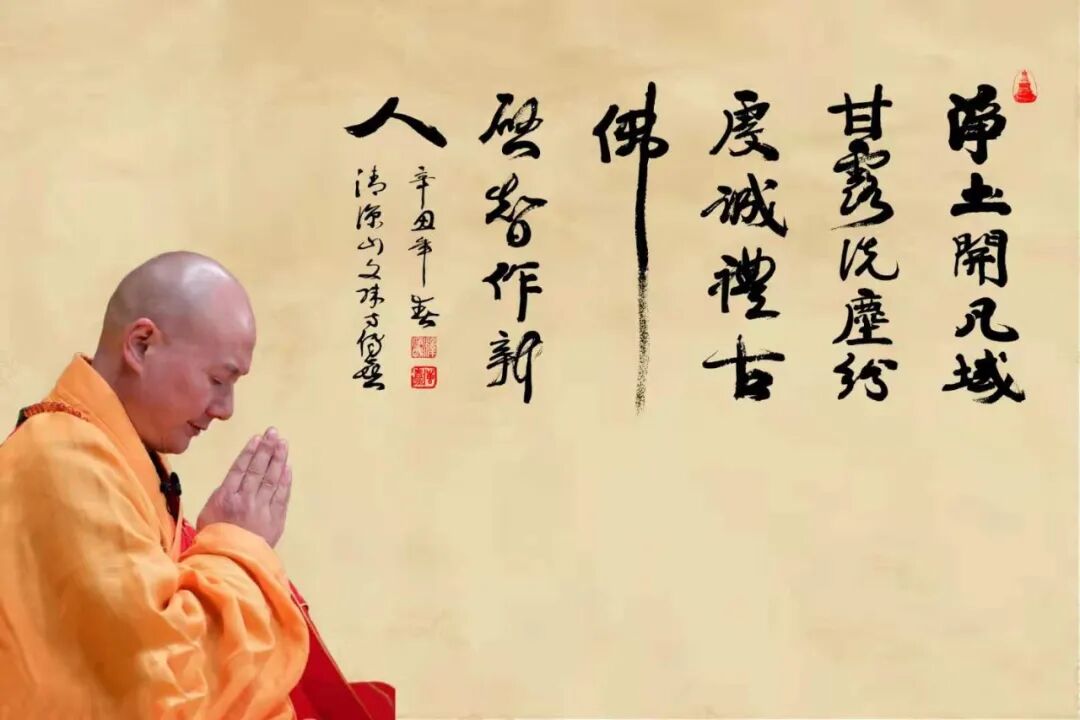 淨土開凡域
甘露洗塵紛
虔誠禮古
佛
啓智作新
人
辛丑年春
清涼山文殊寺傳燈